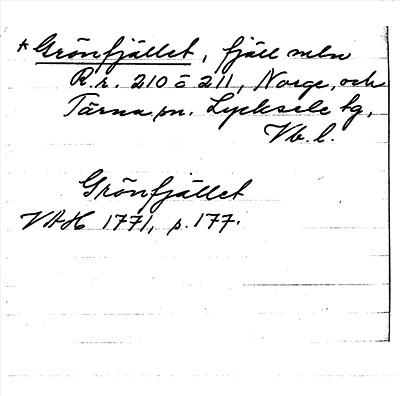 * Grönfjället, fjäll mln
R.r. 210 o 211, Norge, och
Tärna sn. Lycksele lg,
Vb. l.
Grönfjället
VAH 1771, p. 177.